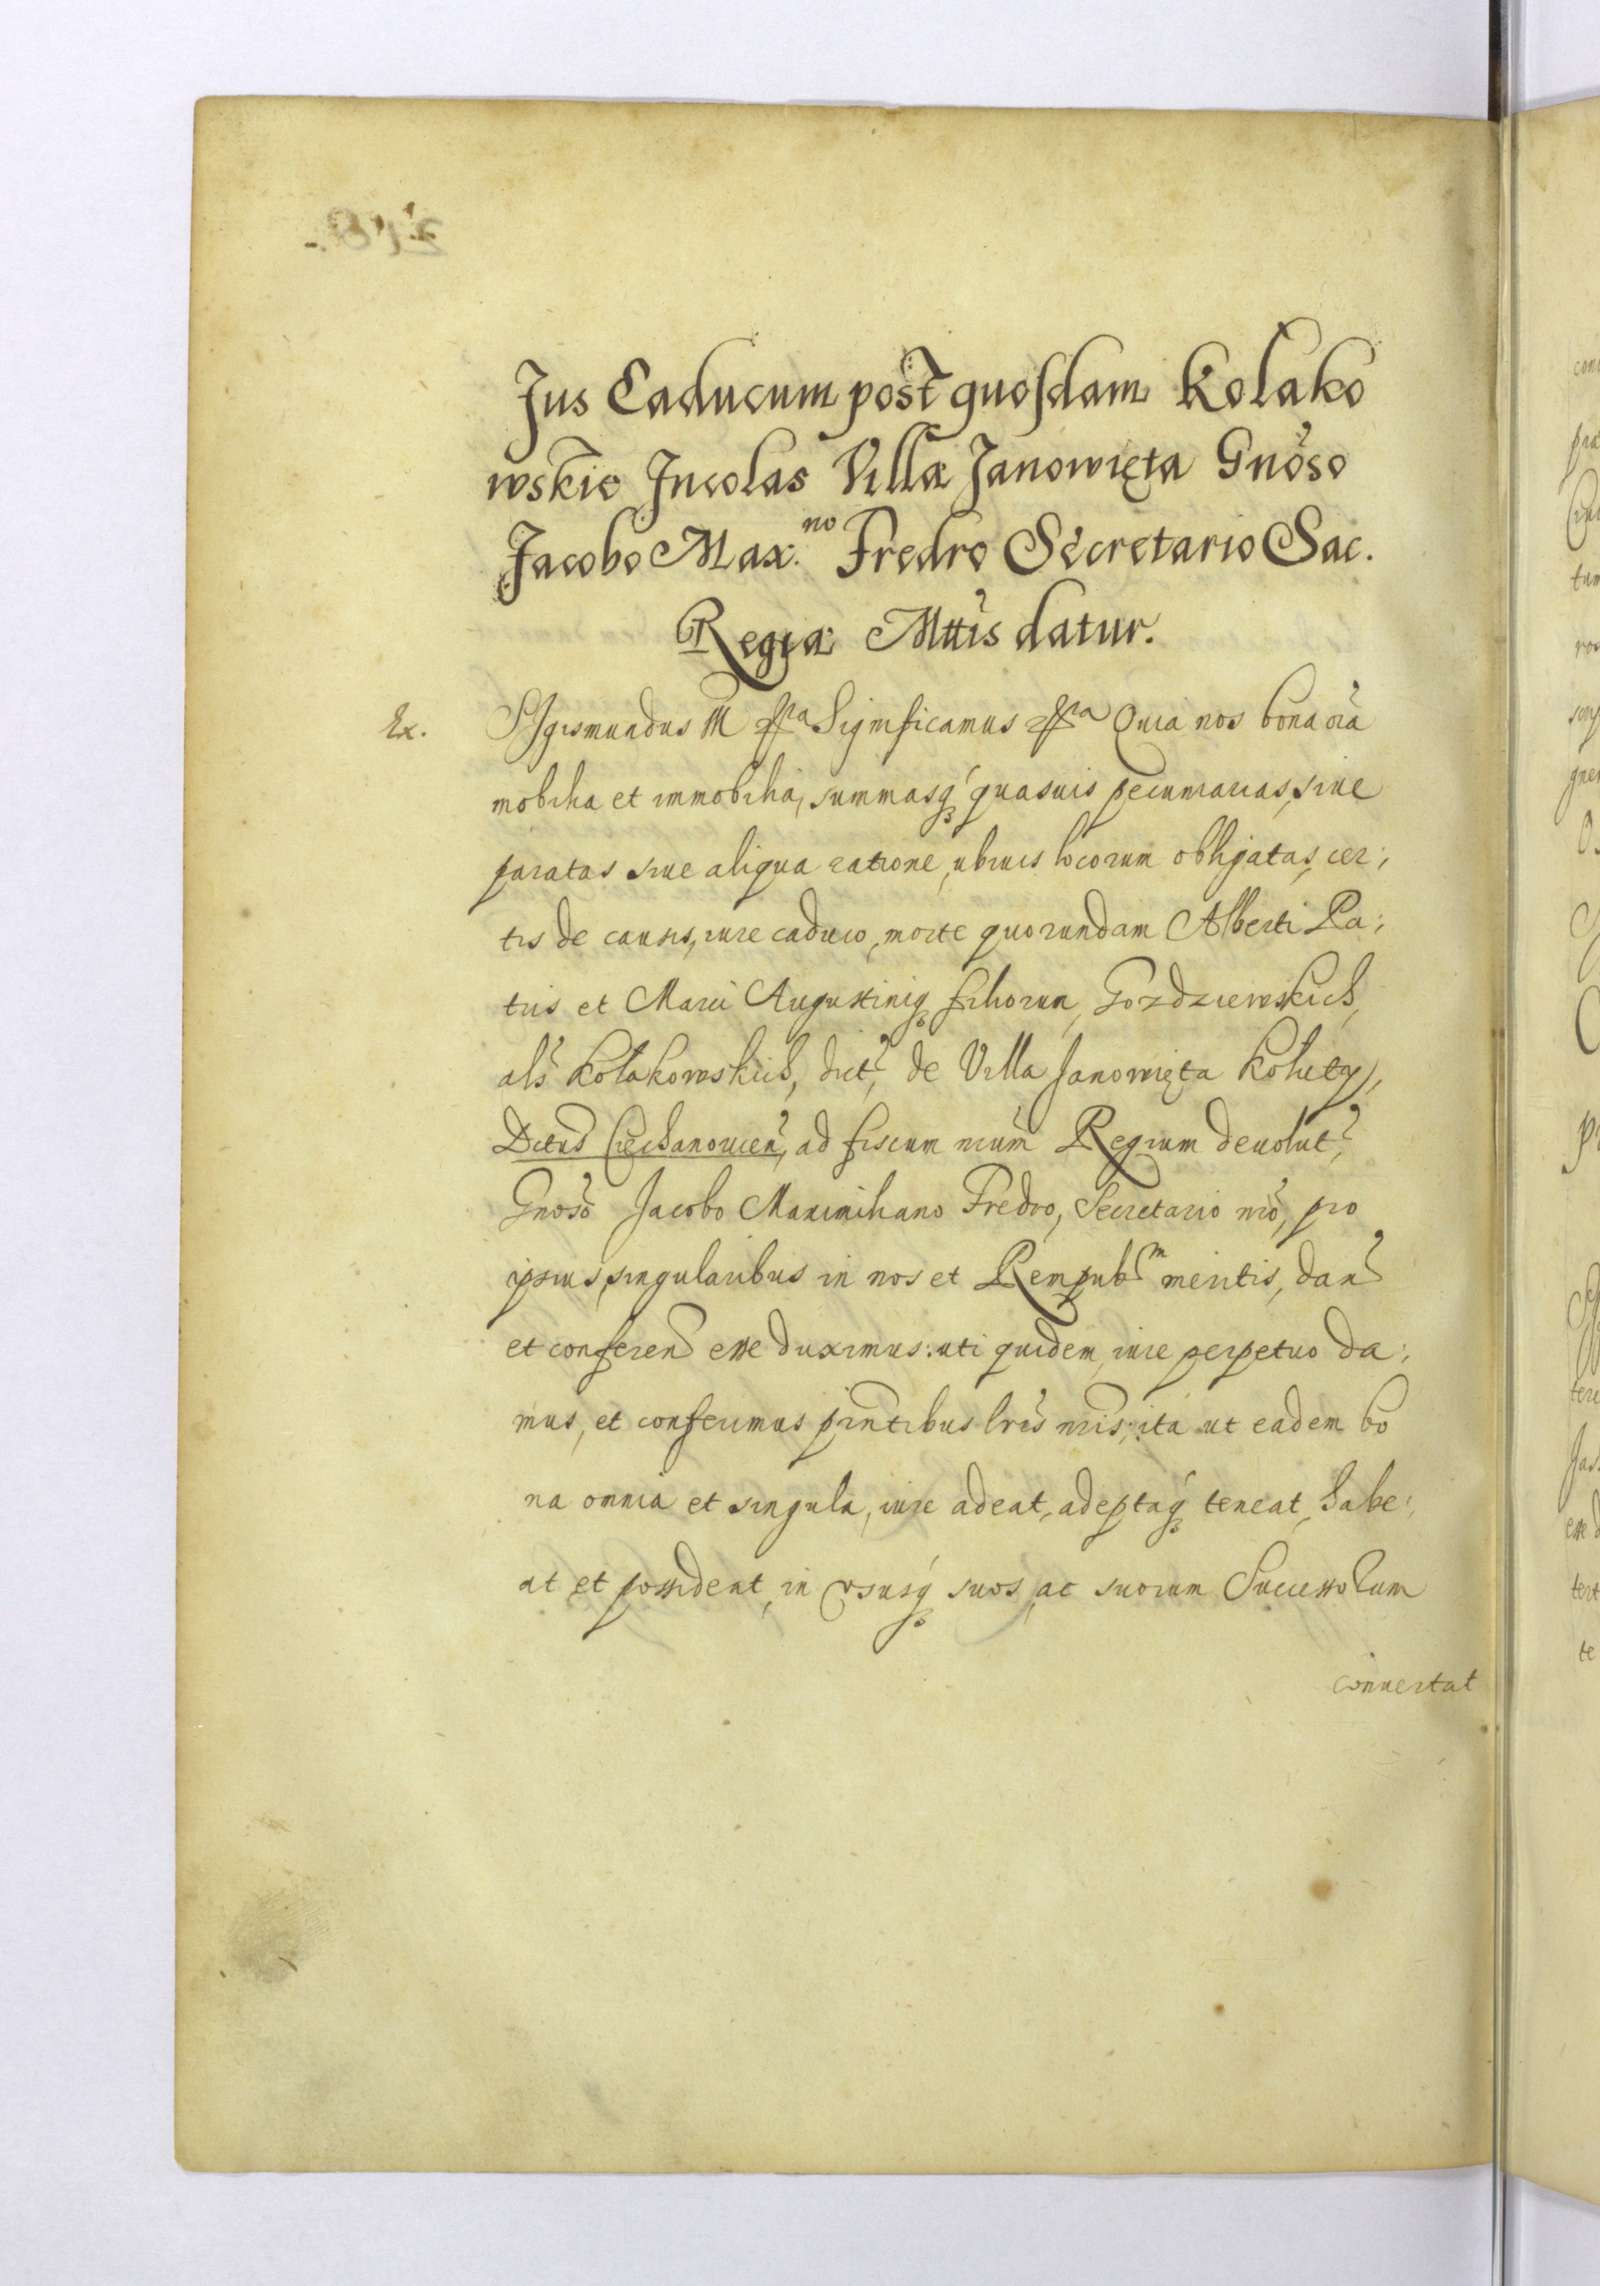 Jus Caducum post quosdam Kolako
wskie Incolas Villæ Janowięta Gnõso
Jacobo Max.no Fredro Secretario Sac.
Regiæ Mttis datur.
Ex. SIgismundus III Significamus Quia nos bona oĩa
mobilia et immobilia, summasq quasuis pecuniarias, siue
paratas siue aliqua ratione, ubiuis locorum obligatas, cer:
tis de causis, iure caduco, morte quorundam Alberti Pa:
tris et Marci Augustiniq filiorum, Gozdziewskich,
als Kolakowskich, dict, de Villa Janowięta Koluty,
Dctus Ciechanouien, ad fiscum nrum Regium deuolut,
Gnoso Jacobo Maximiliano Fredro, Secretario nro, pro
ipsius, singularibus in nos et Rempubm meritis, dan
et conferen esse duximus: uti quidem iure perpetuo da:
mus, et conferimus pntibus lris nris, ita ut eadem bo
na omnia et singula, iure adeat, adeptaq teneat, habe:
at et possideat, in vsusq suos, ac suorum Successorum
conuertat